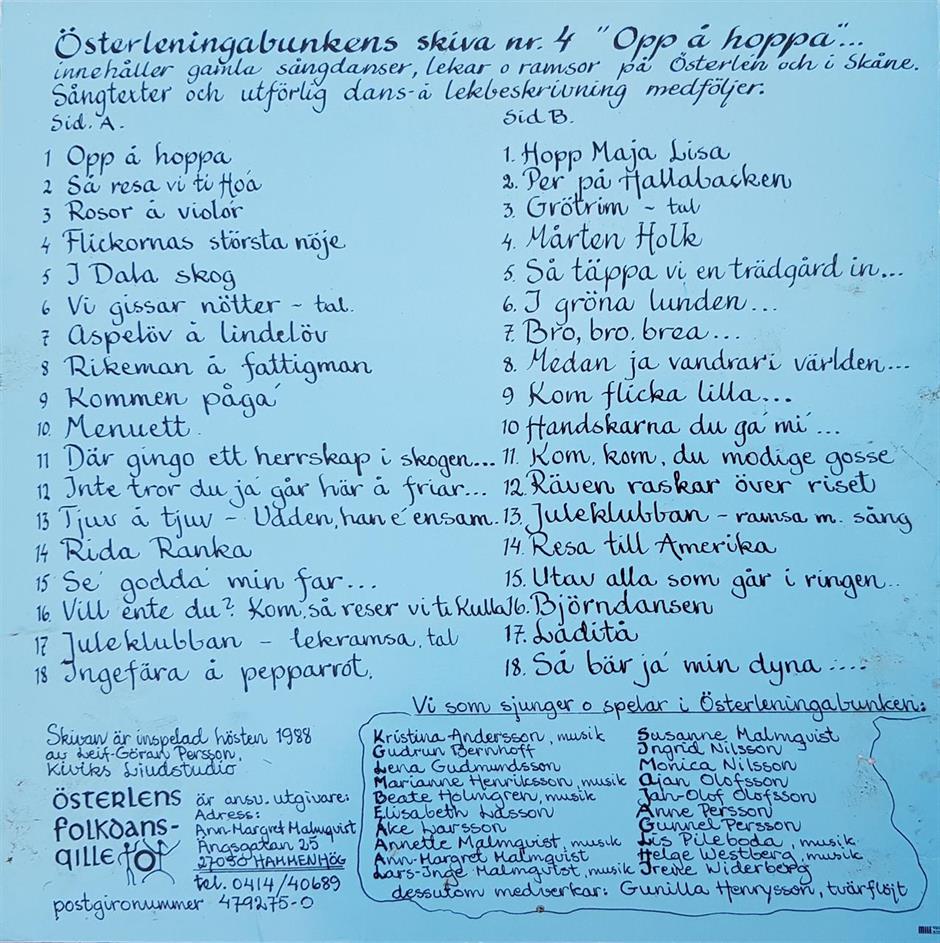 Österleningabunkens skiva nr. 4 "Opp å hoppa"...
innehåller gamla sångdanser, lekar o ramsor på Österlen och i Skåne.
Sångtexter och utförlig dans-å lekbeskrivning medföljer.
Sid. A.
1 Opp å hoppa
2 Så resa vi ti Hoá
3 Rosor å violor
4 Flickornas största nöje
5 I Dala skog
6 Vi gissar nötter - tal.
7 Aspelöv å lindelöv
8 Rikeman å fattigman
9 Kommen pågá
10. Menuett.
11 Där gingo ett herrskap i skogen...
12 Inte tror du já går här å friar...
13 Tjuv å tjuv - Udden, han é ensam.
14 Rida Ranka
15 Sé goddá min far...
16. Vill ente du? Kom, så reser vi ti Kulla
17 Juleklubban - lekramsa, tal
18 Ingefära å pepparrot.
Sid B.
1. Hopp Maja Lisa
2. Per på Hallabacken
3. Grötrim - tal
4. Mårten Holk
5. Så täppa vi en trädgård in...
6. I gröna lunden...
7. Bro, bro, brea...
8. Medan ja vandrar i världen...
9 Kom flicka lilla...
10 Handskarna du gá mí...
11. Kom, kom, du modige gosse
12. Räven raskar över riset
13. Juleklubban - ramsa m. sång
14. Resa till Amerika
15. Utav alla som går i ringen..
16. Björndansen
17. Låditå
18. Så bär já min dyna ....
Skivan är inspelad hösten 1988
av Leif-Göran Persson,
Kiviks Ljudstudio
ÖSTERLENS
FOLKDANS-
GILLE
är ansv. utgivare:
Adress:
Ann-Margret Malmqvist
Ängsgatan 25
27050 HAMMENHÖG
tel. 0414/40689
postgironummer 479275-0
Vi som sjunger o spelar i Österleningabunken:
Kristina Andersson, musik
Gudrun Bernhoff
Lena Gudmundsson
Marianne Henriksson, musik
Beate Holmgren, musik
Elisabeth Lasson
Åke Larsson
Annette Malmqvist, musik
Ann-Margret Malmqvist
Lars-Inge Malmqvist, musik
Susanne Malmqvist
Ingrid Nilsson
Monica Nilsson
Ajan Olofsson
Jan-Olof Olofsson
Anne Persson
Gunnel Persson
Lis Pileboda, musik
Helge Westberg, musik
Irene Widerberg
dessutom medverkar: Gunilla Henrysson, tvärflöjt